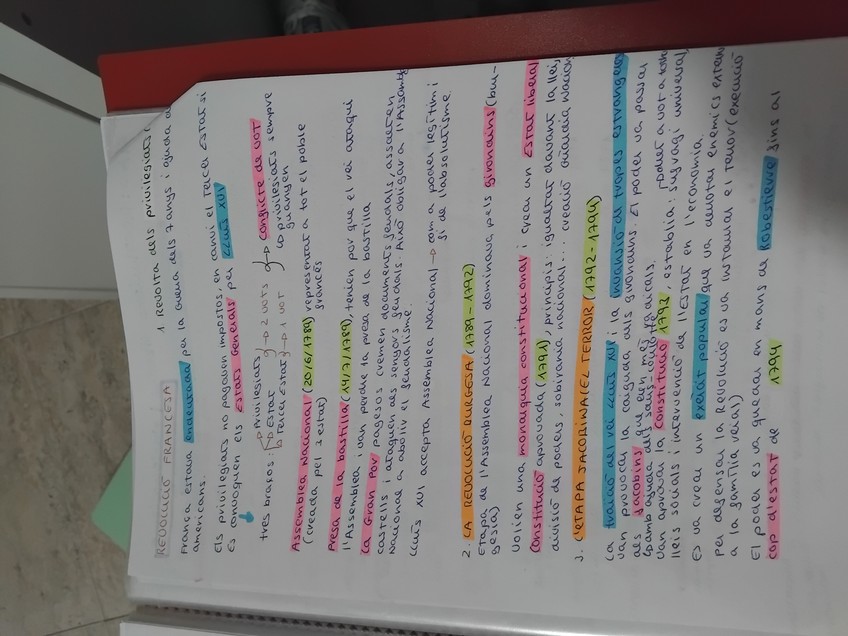 REVOLUCIÓ FRANCESA
1 REVOLTA dels privilegiats
França estava endeutada per la Guerra dels 7 anys i ajuda a
americans.
Els privilegiats no pagaven impostos, en canvi el Tercer Estat sí
Es convoquen els Estats Generals per Lluís XVI
tres braços: Privilegiats → 2 vots → Conflicte de VOT
Estat
Tercer Estat → 1 vot
privilegiats sempre
guanyen
Assemblea Nacional (20/6/1789) representar a tot el poble
(creada pel 3 estat) francès
Presa de la bastilla (14/7/1789), tenien por que el rei ataqui
l'Assemblea i van perdre la presa de la bastilla
La Gran Por pagesos cremen documents feudals, assalten
castells i ataquen als senyors feudals. Això obligarà a l'Assamb
Nacional a abolir el feudalisme.
Lluís XVI accepta Assemblea Nacional → com a poder legítim i
fi de l'absolutisme
2. LA REVOLUCIÓ BURGESA (1789-1792)
Etapa de l'Assemblea Nacional dominava pels girondins (bur-
gesia)
Volien una monarquia constitucional i crear un Estat liberal
Constitució aprovada (1791), principis: igualtat davant la llei,
divisió de poders, sobirania nacional... creació guardia Nacion
3. L'ETAPA JACOBINA (EL TERROR) (1792-1794)
La traició del rei Lluís XVI i la invahsió de tropes estrangeres
van provocar la caiguda dels girondins. El poder va passar
als Jacobins que eren més radicals.
amb ajuda dels sans-culotte
Van aprovar la Constitució 1792, establia: sufragi universal,
poder a vot a tots
lleis socials i intervenció de l'Estat en l'economia.
Es va crear un exèrcit popular que va derrotar enemics extern
Per defensar la Revolució es va instaurar el terror (execució
a la família reial)
El poder es va quedar en mans de Robestierre fins al
cop d'estat de 1794